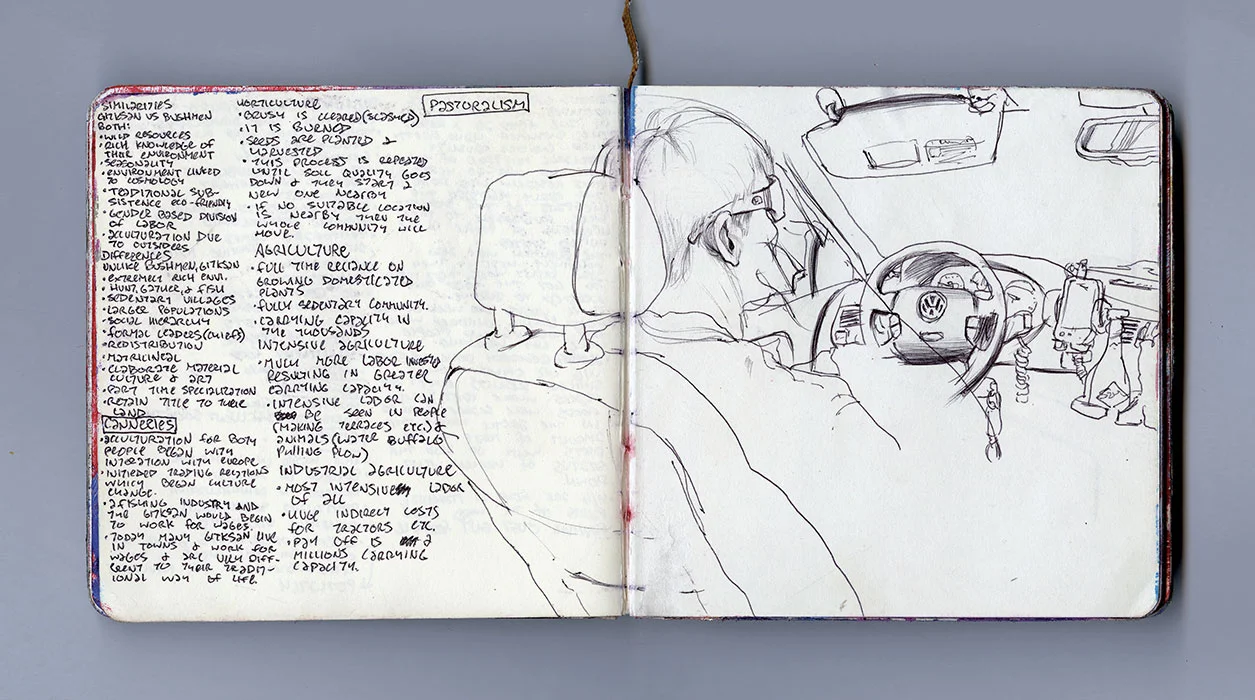 SIMILARITIES
GITKSAN VS BUSHMEN
BOTH:
• WILD RESOURCES
• RICH KNOWLEDGE OF
THEIR ENVIRONMENT
• SEASONALITY
• ENVIRONMENT LINKED
TO COSMOLOGY
• TRADITIONAL SUB-
SISTENCE ECO-FRIENDLY
• GENDER BASED DIVISION
OF LABOR
• ACULTURATION DUE
TO OUTSIDERS
DIFFERENCES
UNLIKE BUSHMEN, GITKSAN
• EXTREMELY RICH ENVI.
• HUNT, GATHER, & FISH
• SEDENTARY VILLAGES
• LARGER POPULATIONS
• SOCIAL HIERARCHY
• FORMAL LEADERS (CHIEFS)
• REDISTRIBUTION
• MATRILINEAL
• ELABORATE MATERIAL
CULTURE & ART
• PART TIME SPECIALIZATION
• RETAIN TITLE TO THEIR
LAND
CANNERIES
• ACULTURATION FOR BOTH
PEOPLE BEGAN WITH
INTERATION WITH EUROPE
• INITIEDED TRADING RELATIONS
WHICH BEGAN CULTURE
CHANGE.
• A FISHING INDUSTRY AND
THE GITKSAN WOULD BEGIN
TO WORK FOR WAGES.
• TODAY MANY GITKSAN LIVE
IN TOWNS & WORK FOR
WAGES & ARE VERY DIFF-
ERENT TO THEIR TRADIT-
IONAL WAY OF LIFE.
HORTICULTURE
• BRUSH IS CLEARED (SLASHED)
• IT IS BURNED
• SEEDS ARE PLANTED &
HARVESTED
• THIS PROCESS IS REPEATED
UNTIL SOIL QUALITY GOES
DOWN & THEY START A
NEW ONE NEARBY
• IF NO SUITABLE LOCATION
IS NEARBY THEN THE
WHOLE COMMUNITY WILL
MOVE.
AGRICULTURE
• FULL TIME RELIANCE ON
GROWING DOMESTICATED
PLANTS
• FULLY SEDENTARY COMMUNITY.
• CARRYING CAPACITY IN
THE THOUSANDS
INTENSIVE AGRICULTURE
• MUCH MORE LABOR INVESTED
RESULTING IN GREATER
CARRYING CAPACITY.
• INTENSIVE LABOR CAN
BE SEEN IN PEOPLE
(MAKING TERRACES ETC.) &
ANIMALS (WATER BUFFALO
PULLING PLOW)
INDUSTRIAL AGRICULTURE
• MOST INTENSIVE LABOR
OF ALL
• HUGE INDIRECT COSTS
FOR TRACTORS ETC.
• PAY OFF IS A
MILLIONS CARRYING
CAPACITY.
PASTORALISM
VW